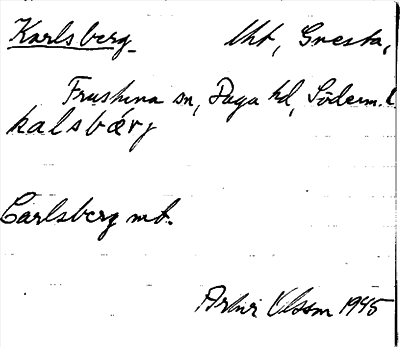 Karlsberg. lht, Gnesta,
Frustuna sn, Daga hd, Söderm. l.
kalsbærj
Carlsberg mb.
Artur Olsson 1945